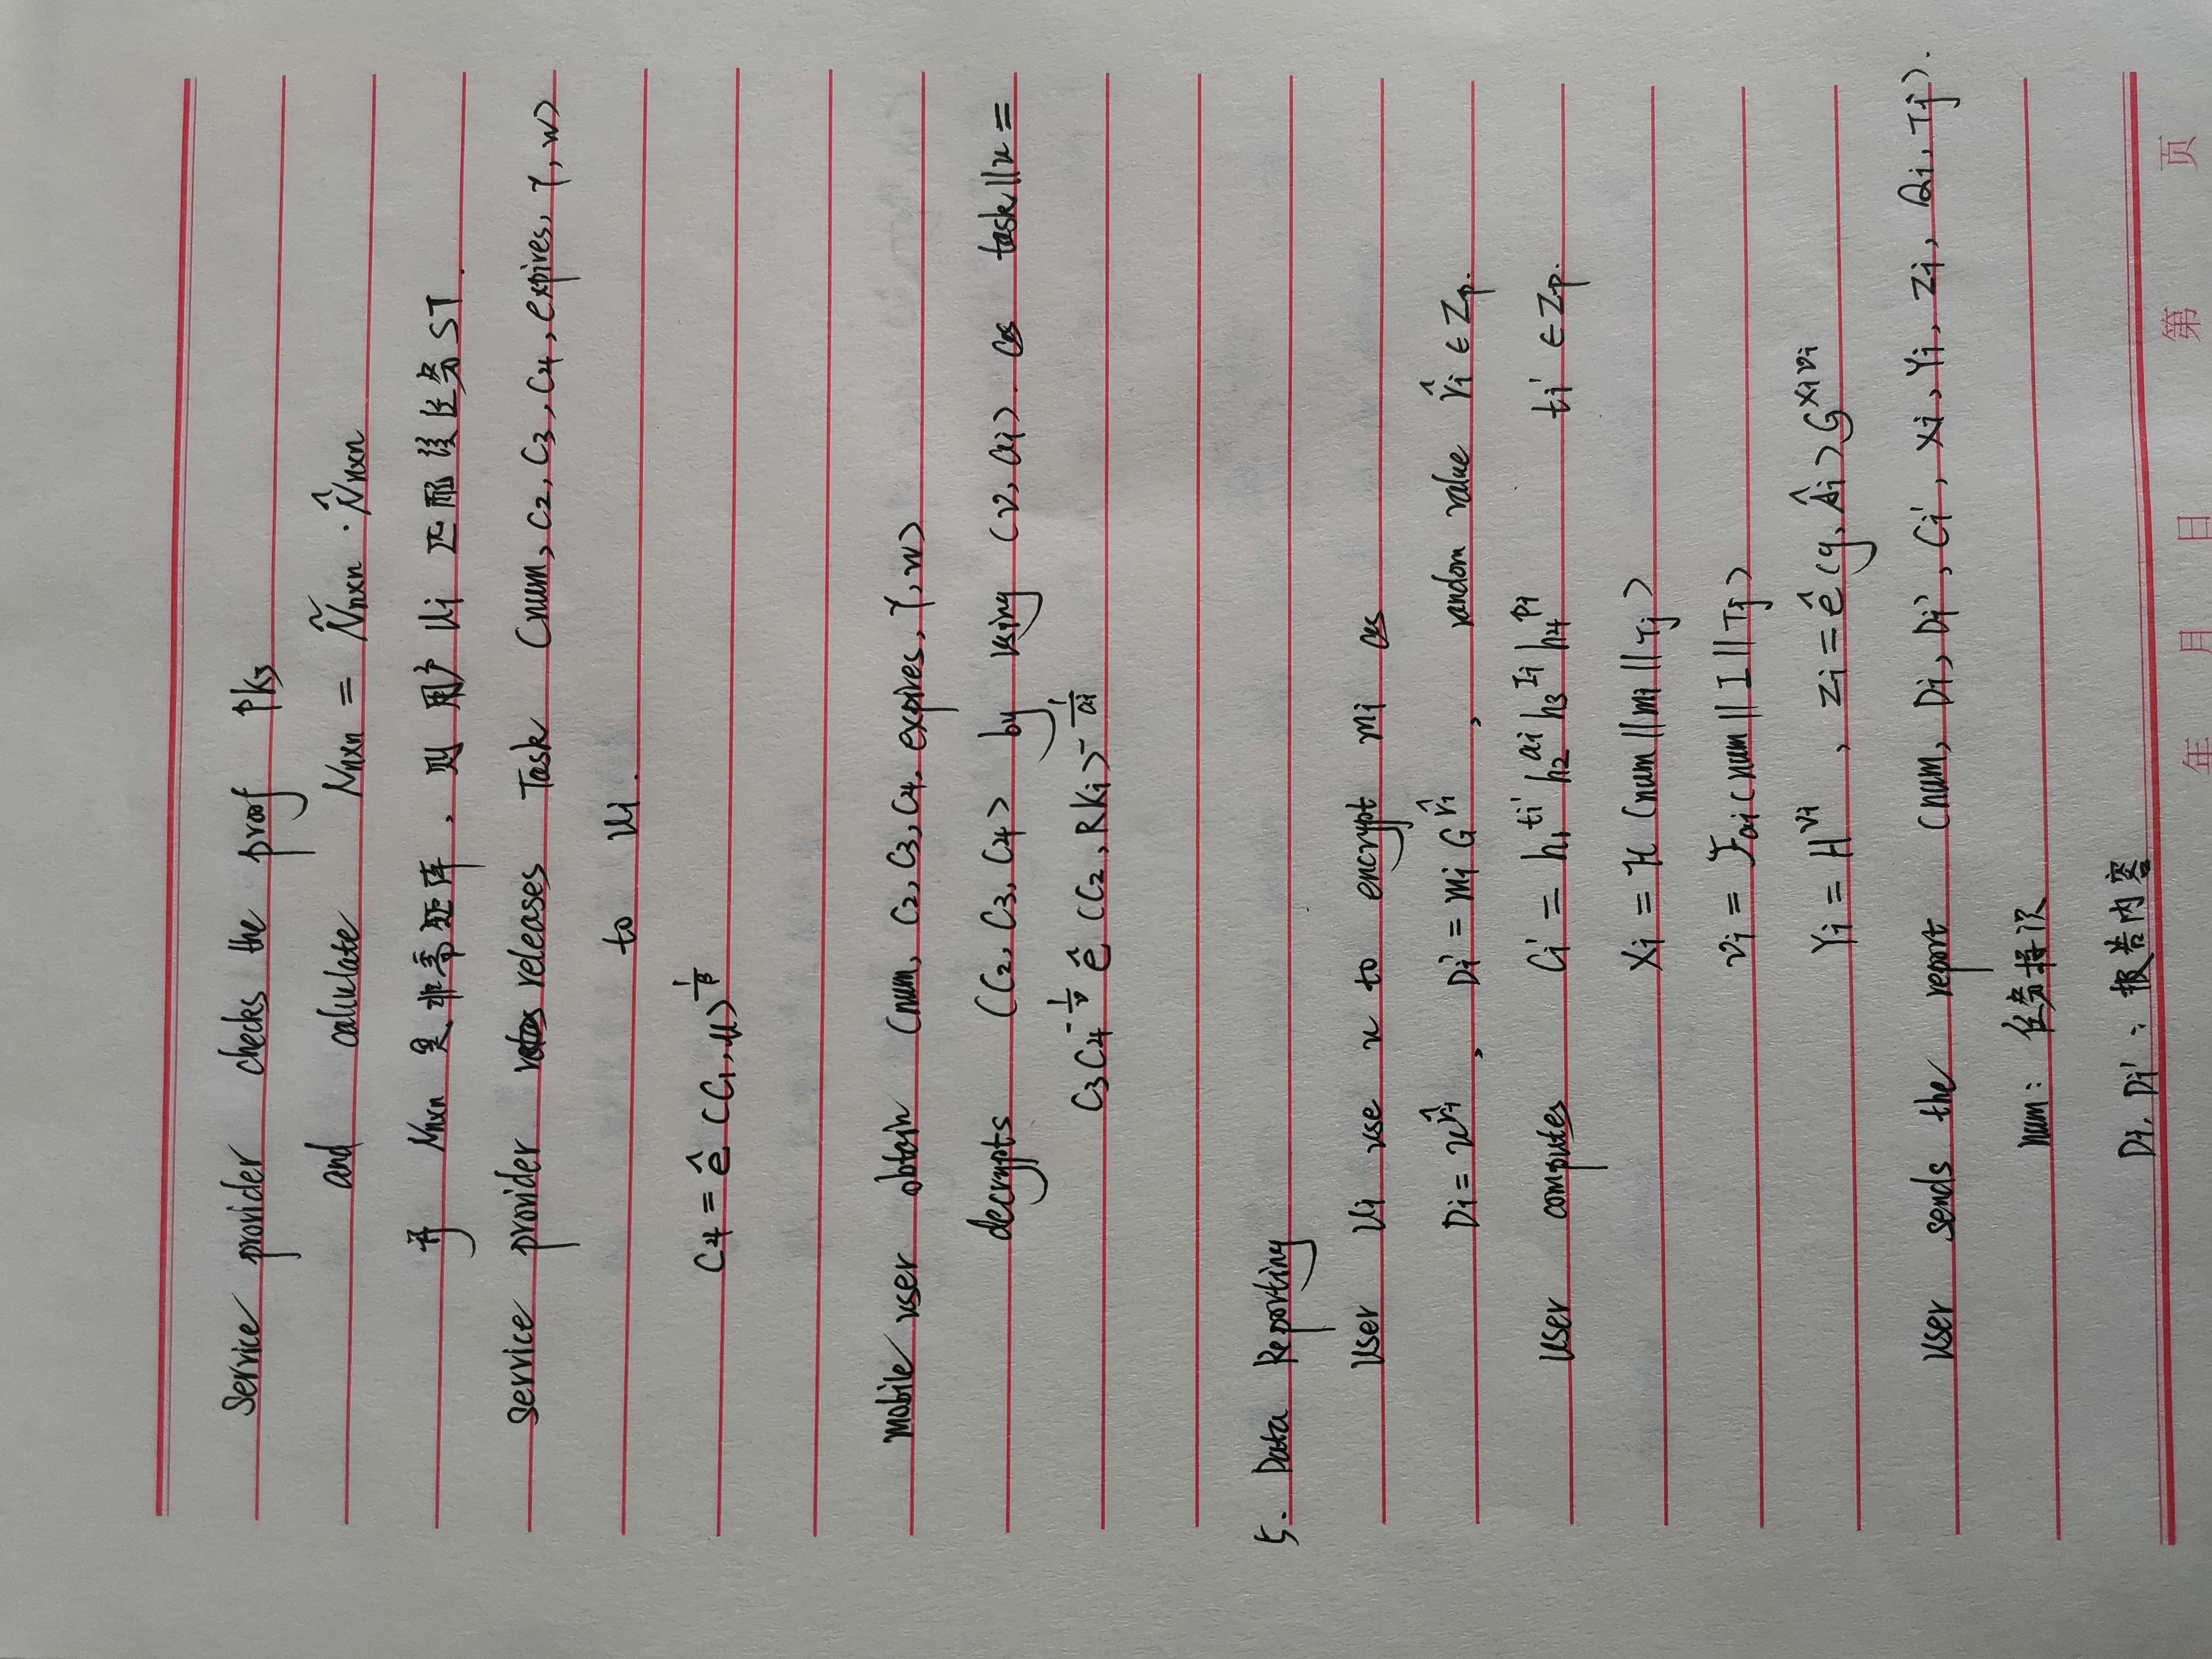 Service provider checks the proof PK3
and calculate Nn×n = Ñn×n · N̂n×n
若 Nn×n 是非零矩阵, 则 用户 Ui 匹配该任务ST.
service provider releases Task (num, C2, C3, C4, expires, γ, w)
to Ui.
C4 = ê (C1, μ)^{1/β}
mobile user obtain (num, C2, C3, C4, expires, γ, w)
decrypts (C2, C3, C4) by using (ν, ai). as task||u =
C3 C4^{-1/ν} ê (C2, RKi)^{-1/ai}
5. Data Reporting
User Ui use u to encrypt mi as
Di = u^{r̂i}, Di' = mi G^{r̂i}, random value r̂i ∈ Zp.
User computes Ci' = h1^{ti'} h2^{ai} h3^{Ii} h4^{pi} ti' ∈ Zp.
Xi = H (num||mi||Tj)
νi = Fai (num||I||Tj)
Yi = H^{νi}, Zi = ê (g, Âi) G^{Xiνi}
User sends the report (num, Di, Di', Ci', Xi, Yi, Zi, Qi, Tj).
num: 任务标识
Di, Di': 报告内容
年 月 日 第 页